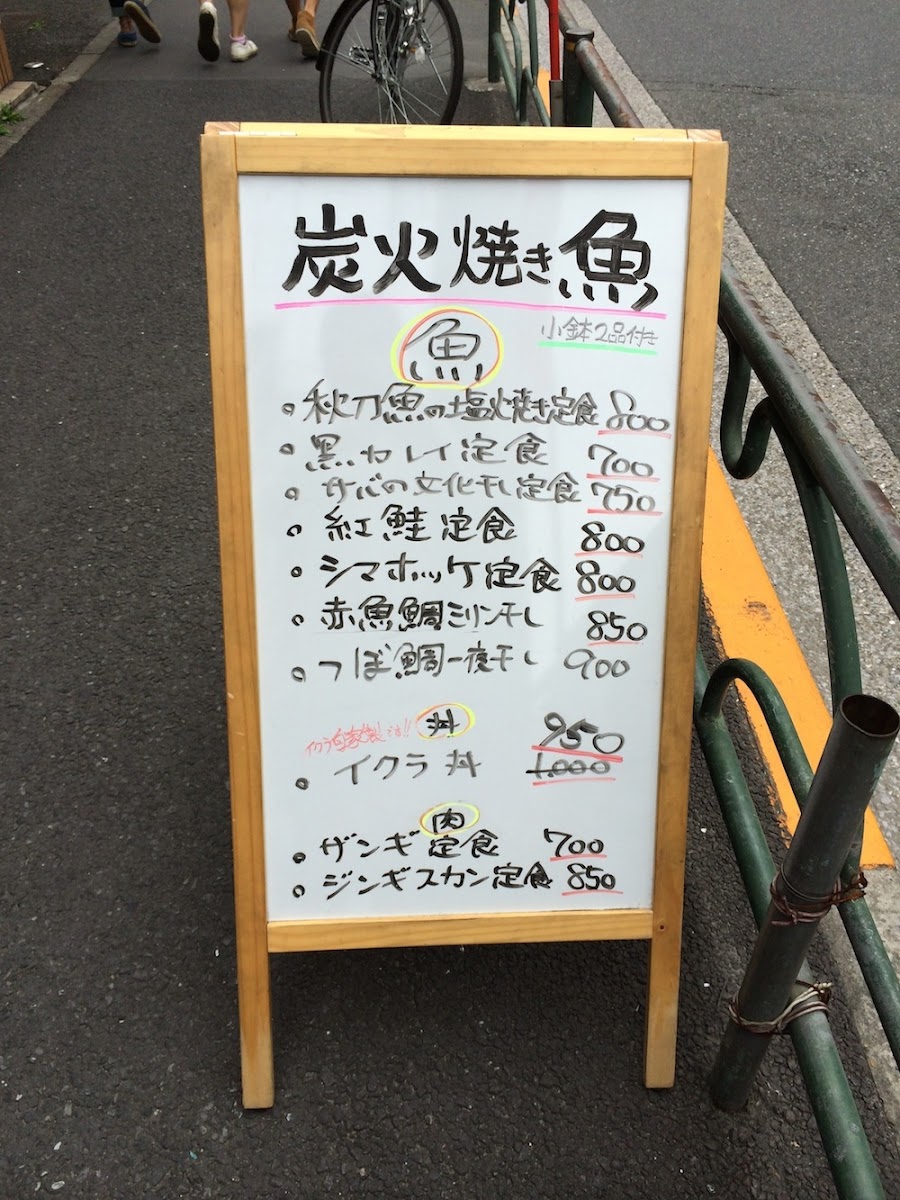 炭火焼き魚
小鉢2品付き
魚
。秋刀魚の塩焼き定食 800
。黒カレイ定食 700
。サバの文化干し定食 750
。紅鮭定食 800
。シマホッケ定食 800
。赤魚鯛ミリン干し 850
。つぼ鯛一夜干し 900
イクラ自家製です!! 丼 950
。イクラ丼 1.000
肉
。ザンギ定食 700
。ジンギスカン定食 850